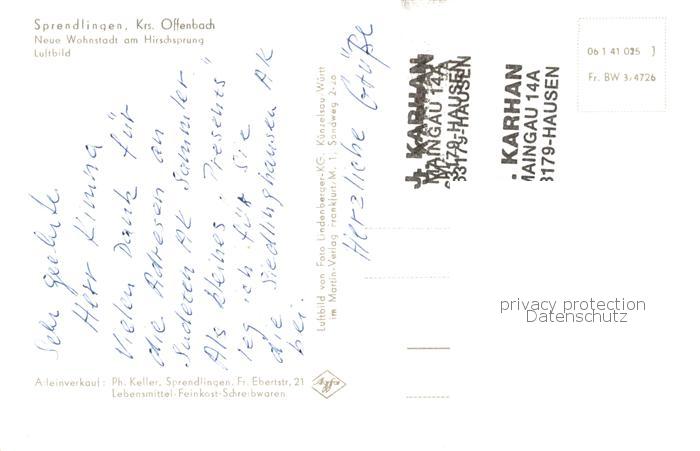 Sprendlingen, Krs. Offenbach
Neue Wohnstadt am Hirschsprung
Luftbild
Sehr geehrter
Herr Kinna
Vielen Dank für
die Adresen an
Suderen AK Sammler.
Als kleines "Presents"
leg ich für Sie
die Siedlinghausen AK
bei.
Herzliche Grüße
Luftbild von Foto Lindenberger-KG. Künzelsau-Württ
im Martin-Verlag Frankfurt/M. 1, Sandweg
Alleinverkauf: Ph. Keller, Sprendlingen, Fr. Ebertstr. 21
Lebensmittel-Feinkost-Schreibwaren
Agfa
J. KARHAN
MAINGAU 14A
63179-HAUSEN
. KARHAN
MAINGAU 14A
63179-HAUSEN
06 1 41 025
Fr. BW 3/4726
privacy protection
Datenschutz